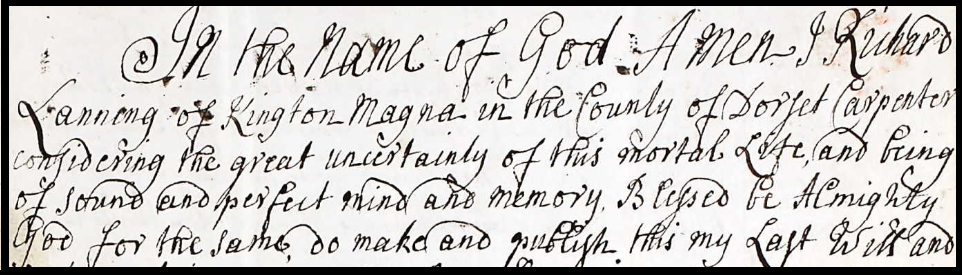 In the Name of God Amen I Richard
Lanneng of Kington Magna in the County of Dorset Carpenter
considering the great uncertainly of this mortal Life, and being
of sound and perfect mind and memory, Blessed be Almighty
God for the same, do make and publish this my Last Will and